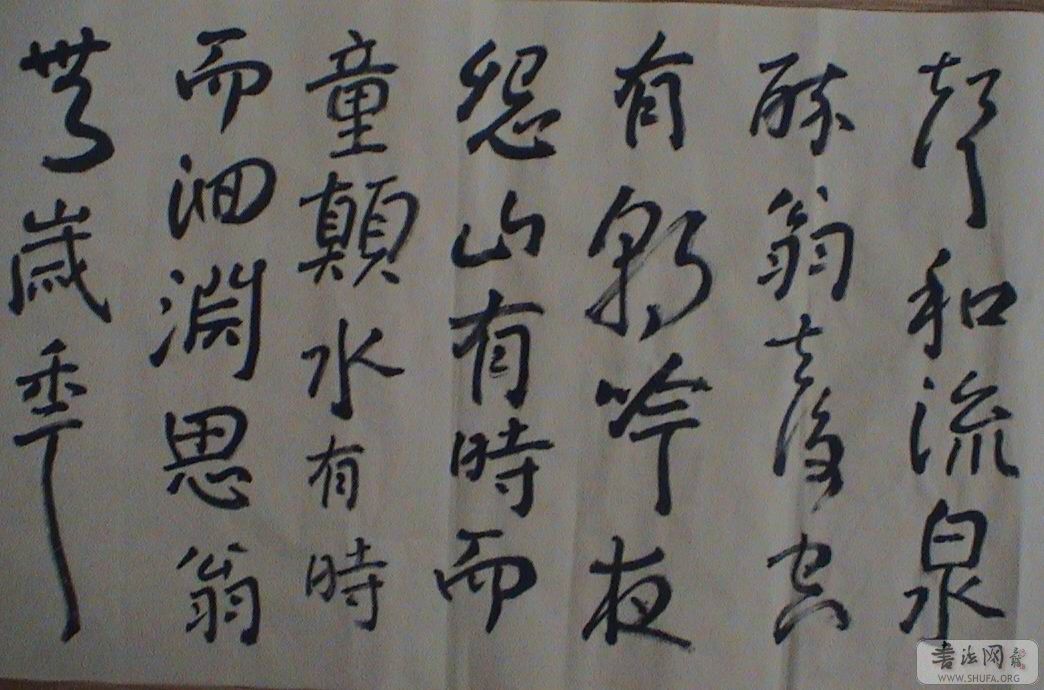 聲和流泉
醉翁去後空
有朝吟夜
怨山有時而
童顛水有時
而洄淵思翁
無歲年
書法网
WWW.SHUFA.ORG